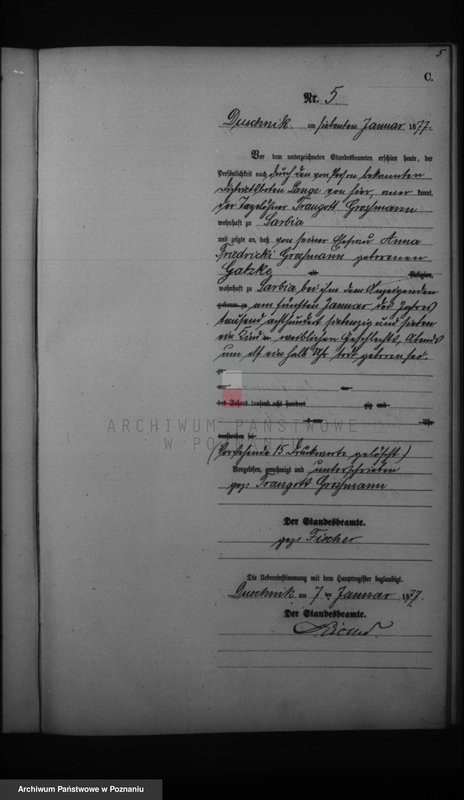 5
C.
Nr. 5
Duschnik am siebenten Januar 1877.
Vor dem unterzeichneten Standesbeamten erschien heute, der
Persönlichkeit nach durch den von Person bekannten
Distriktsboten Lange von hier, kannt,
der Tagelöhner Traugott Grossmann
wohnhaft zu Sarbia
und zeigte an, daß von seiner Ehefrau Anna
Grossmann geborenen
Gatzke, alt Religion,
wohnhaft zu Sarbia bei ihm dem Anzeigenden
geboren zu am fünften Januar des Jahres
tausend achthundert siebenzig und sieben
ein Kind weiblichen Geschlechts, Abends
um elf ein halb Uhr todt geboren sei.
des Jahres tausend acht hundert zig und
Uhr
verstorben sei
ARCHIWUM PAŃSTWOWE
W POZNANIU
(Vorstehende 15 Druckworte gelöscht)
Vorgelesen, genehmigt und unterschrieben
gez. Traugott Grossmann
Der Standesbeamte.
gez. Fischer
Die Uebereinstimmung mit dem Hauptregister beglaubigt.
Duschnik am 7 ten Januar 1877.
Der Standesbeamte.
Archiwum Państwowe w Poznaniu